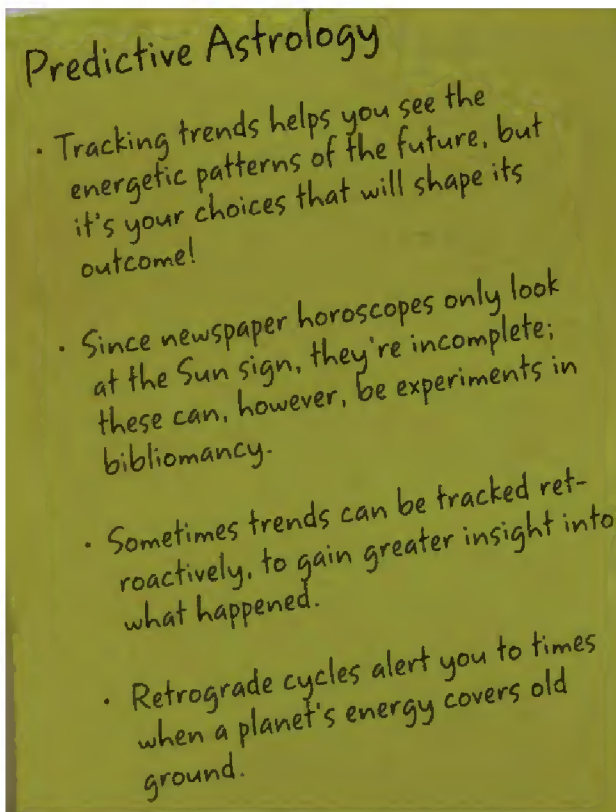 Predictive Astrology
· Tracking trends helps you see the
energetic patterns of the future, but
it's your choices that will shape its
outcome!
· Since newspaper horoscopes only look
at the Sun sign, they're incomplete;
these can, however, be experiments in
bibliomancy.
· Sometimes trends can be tracked ret-
roactively, to gain greater insight into
what happened.
· Retrograde cycles alert you to times
when a planet's energy covers old
ground.